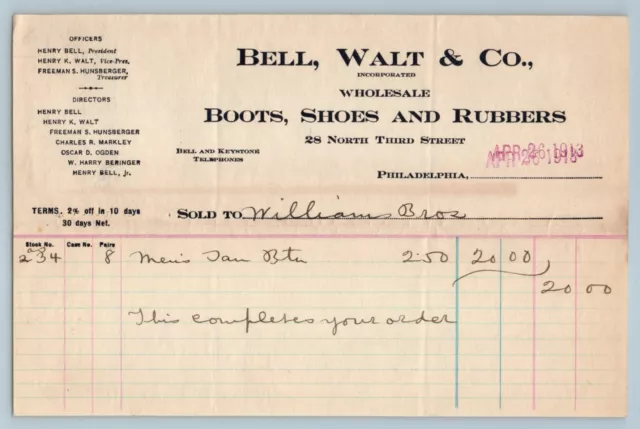 OFFICERS
HENRY BELL, President
HENRY K. WALT, Vice-Pres.
FREEMAN S. HUNSBERGER,
Treasurer
DIRECTORS
HENRY BELL
HENRY K. WALT
FREEMAN S. HUNSBERGER
CHARLES R. MARKLEY
OSCAR D. OGDEN
W. HARRY BERINGER
HENRY BELL, Jr.
TERMS, 2% off in 10 days
30 days Net.
BELL, WALT & CO.,
INCORPORATED
WHOLESALE
BOOTS, SHOES AND RUBBERS
28 NORTH THIRD STREET
BELL AND KEYSTONE
TELEPHONES
APR 26 1913
APR 26 1913
PHILADELPHIA,
SOLD TO Williams Bros
Stock No. Case No. Pairs
234 8 Men's Tan Btn 2.50 20 00
20 00
This completes your order